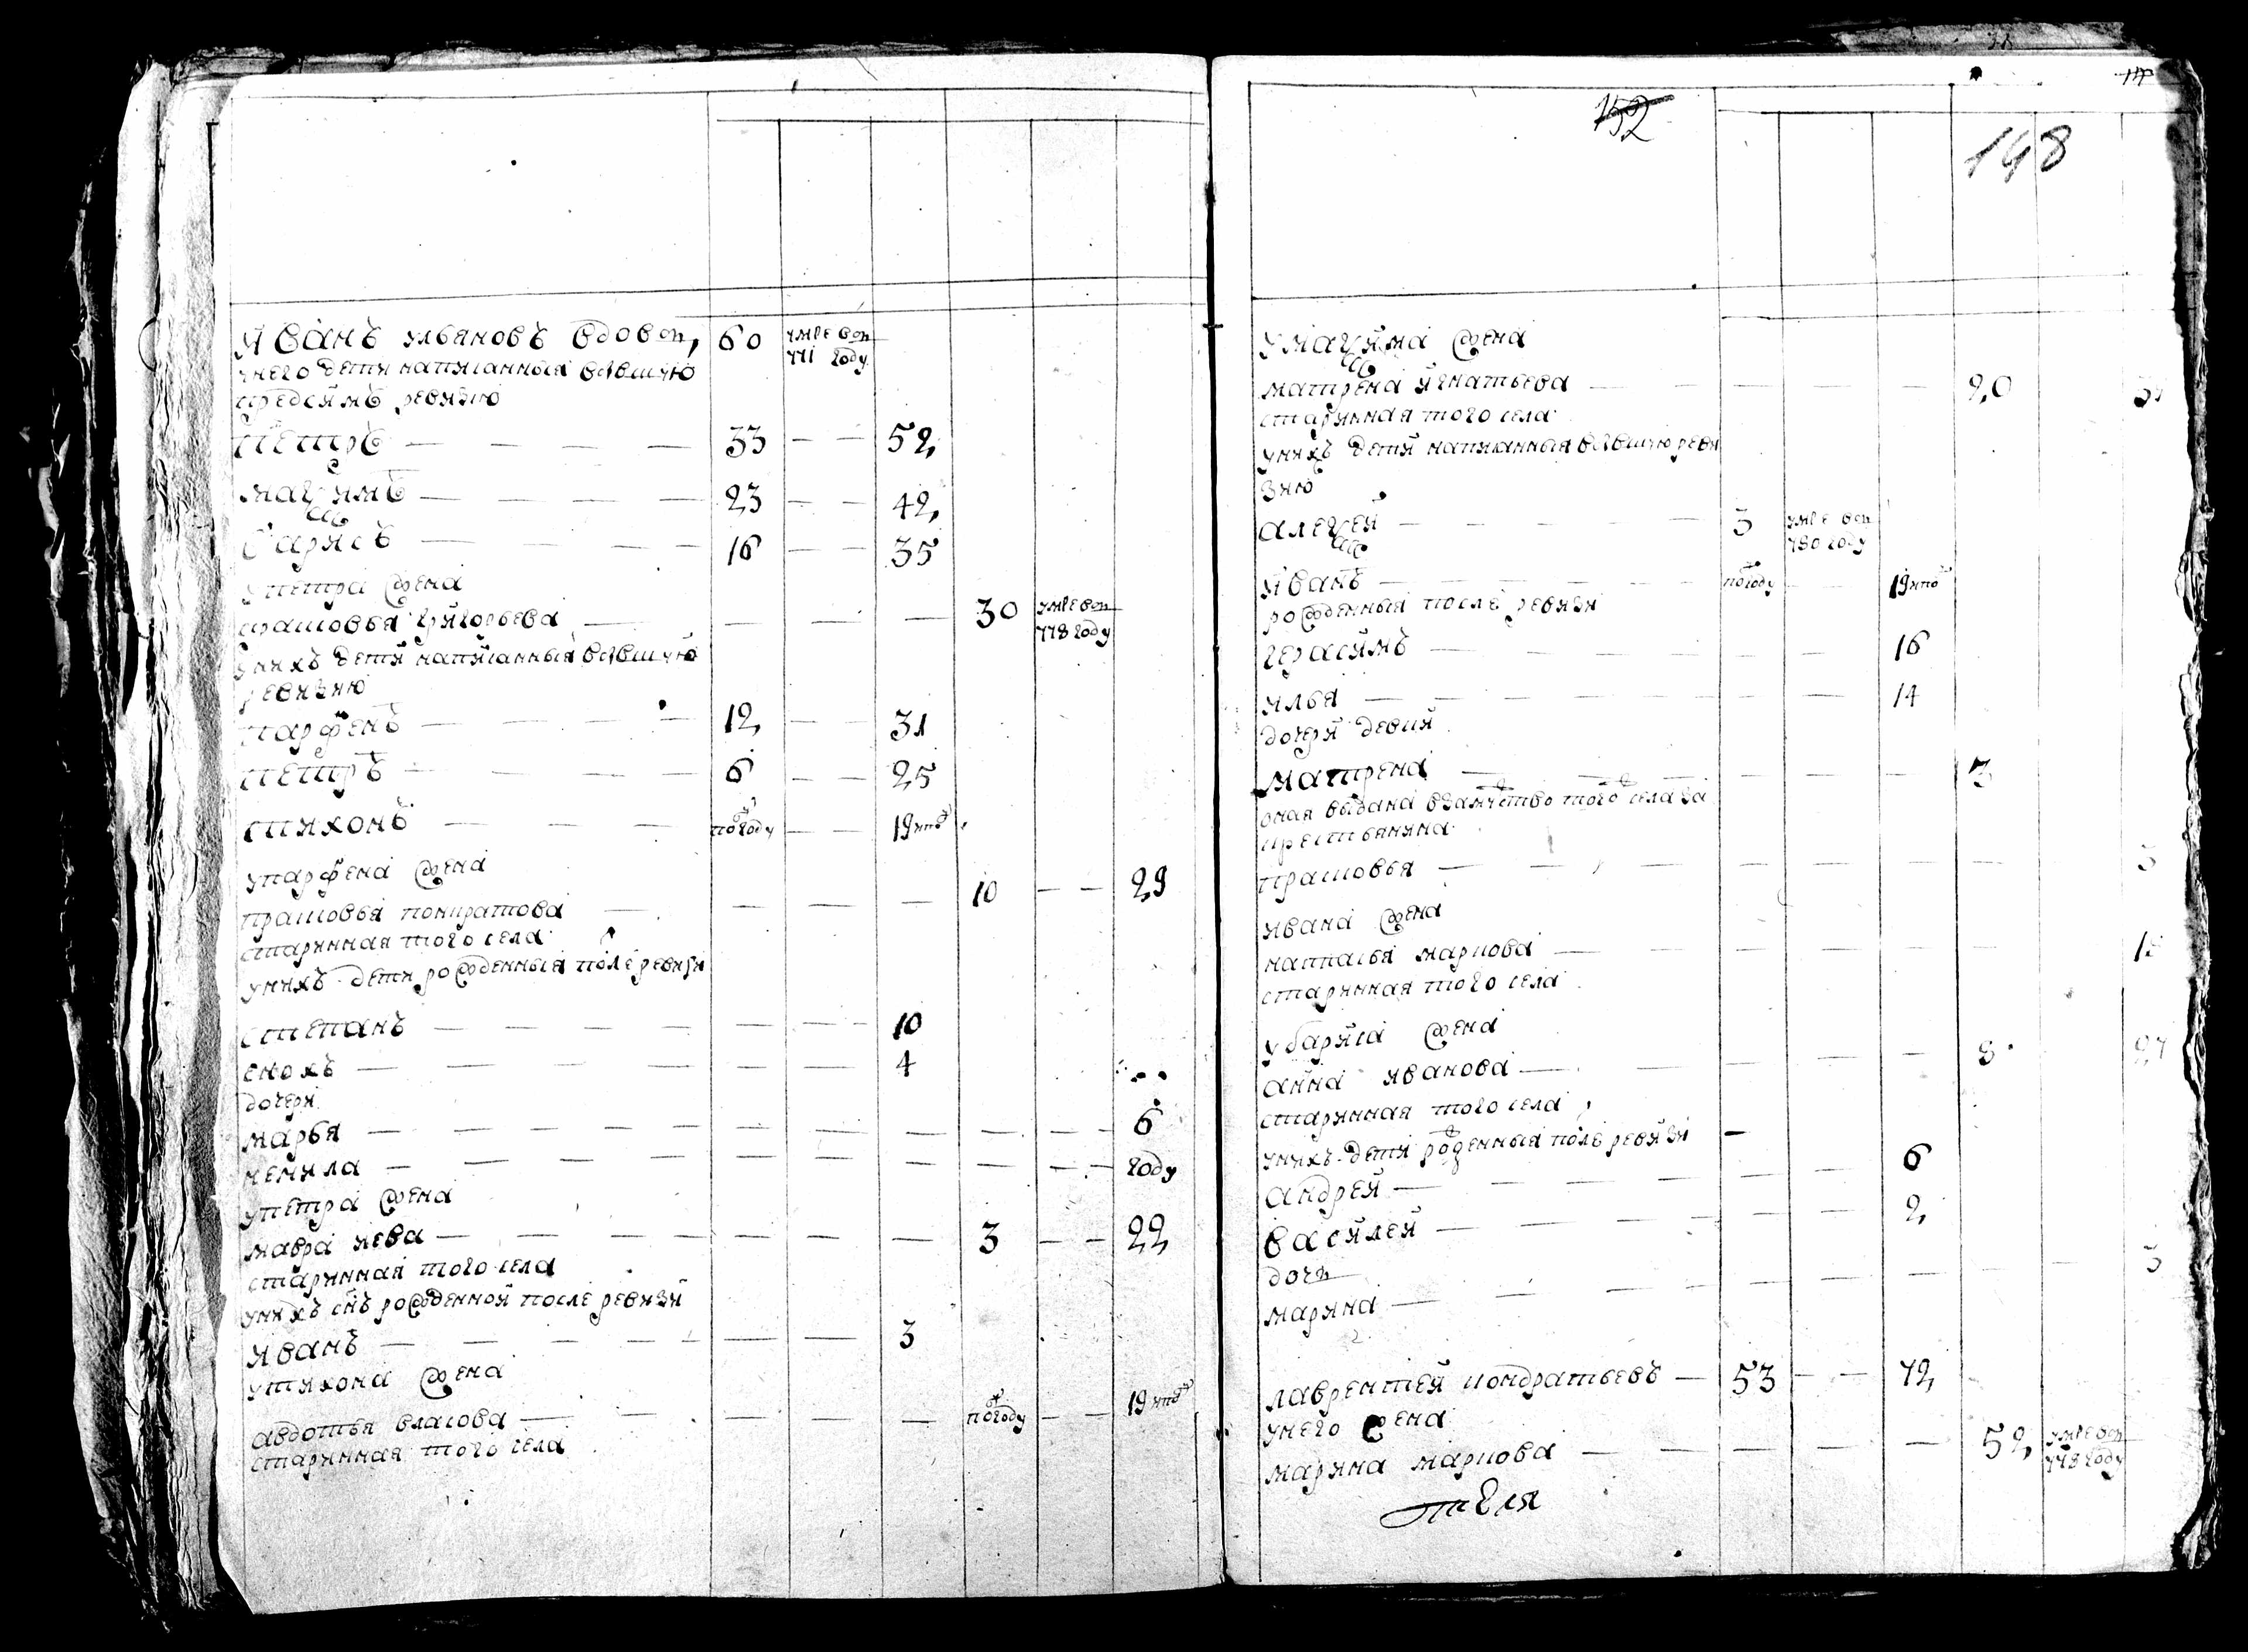 иванъ ульяновъ вдовъ, 60 умре въ 771 году
у него дети написанныя в бывшую
пред симъ ревизию
петръ — — — — 33 — — 52
мачимъ — — — — 23 — — 42
барисъ — — — — 16 — — 35
у петра жена
прасковья григорьева — — — — 30 умре въ 778 году
у нихъ дети написанныя в бывшую
ревизию
парфенъ — — — — 12 — — 31
петръ — — — — 6 — — 25
тихонъ — — — полгоду — — 19 и по
у парфена жена
прасковья понкратова — — — — 10 — — 29
старинная того села
у нихъ дети рожденныя после ревизи
степанъ — — — — — — 10
енохъ — — — — — — 4
дочери
марья — — — — — — — — 6
ненила — — — — — — — — году
у петра жена
мавра — — — — — — 3 — — 22
старинная того села
у нихъ снъ рожденной после ревизии
иванъ — — — — — — 3
у тихона жена
авдотья власова — — — — — полгоду — — 19 и по
старинная того села
152
148
у мачима жена
матрена игнатьева — — — — 20
старинная того села
у нихъ дети написанныя в бывшую реви
зию
алечей — — — — 3 умре въ 780 году
иванъ — — — — полгоду — — 19 и по
рожденныя после ревизи
герасимъ — — — — 16
илья — — — — 14
дочери девки
матрена — — — — — 3
оная выдана в замужство того села за
крестьянина
прасковья — — — — — —
ивана жена
наталья маркова — — — — —
старинная того села
у бариса жена
анна иванова — — — — 8
старинная того села
у нихъ дети рожденныя после ревизи
андрей — — — — 6
василей — — — — 2
дочь
марина — — — — — —
лаврентей кондратьевъ — 53 — — 72
у него жена
марина маркова — — — — 52 умре въ 778 году